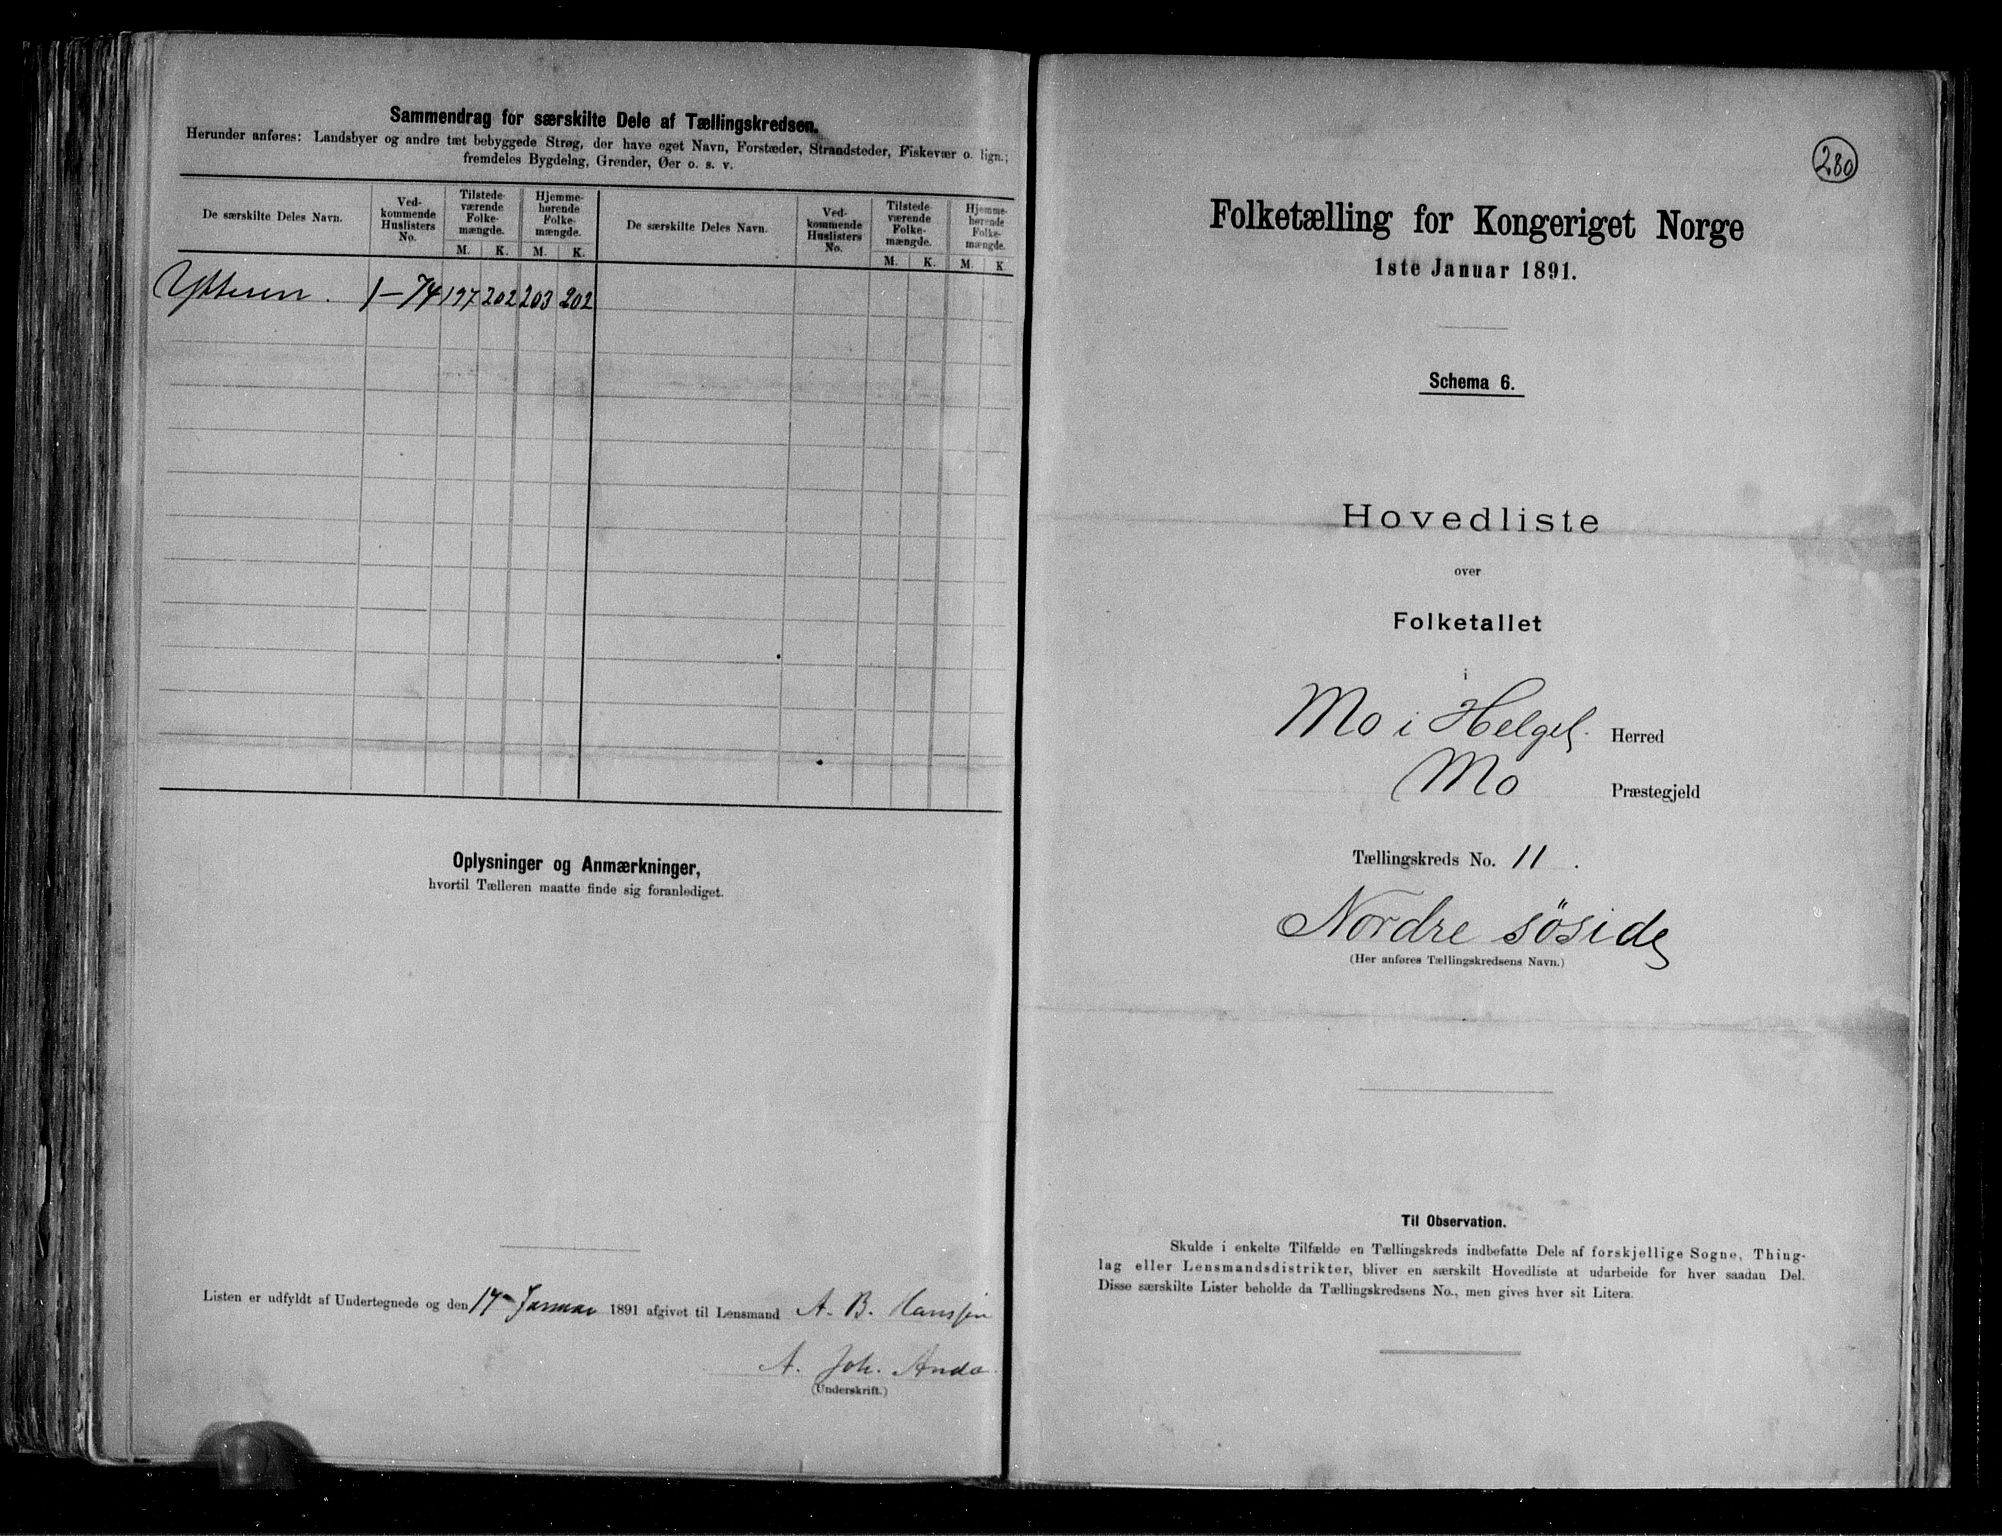 Sammendrag for særskilte Dele af Tællingskredsen.
Herunder anføres: Landsbyer og andre tæt bebyggede Strøg, der have eget Navn, Forstæder, Strandsteder, Fiskevær o. lign.;
fremdeles Bygdelag, Grender, Øer o. s. v.
De særskilte Deles Navn.
Ved-
kommende
Huslisters
No.
Tilstede-
værende
Folke-
mængde.
Hjemme-
hørende
Folke-
mængde.
M. K. M. K.
De særskilte Deles Navn.
Ved-
kommende
Huslisters
No.
Tilstede-
værende
Folke-
mængde.
Hjemme-
hørende
Folke-
mængde.
M. K. M. K
Ytteren. 1-74 197 202 203 202
Oplysninger og Anmærkninger,
hvortil Tælleren maatte finde sig foranlediget.
Listen er udfyldt af Undertegnede og den 17 Januar 1891 afgivet til Lensmand A. B. Hanssen
A. Joh. Anda
(Underskrift.)
280
Folketælling for Kongeriget Norge
1ste Januar 1891.
Schema 6.
Hovedliste
over
Folketallet
i
Mo i Helgel. Herred
Mo Præstegjeld
Tællingskreds No. 11.
Nordre søside
(Her anføres Tællingskredsens Navn.)
Til Observation.
Skulde i enkelte Tilfælde en Tællingskreds indbefatte Dele af forskjellige Sogne, Thing-
lag eller Lensmandsdistrikter, bliver en særskilt Hovedliste at udarbeide for hver saadan Del.
Disse særskilte Lister beholde da Tællingskredsens No., men gives hver sit Litera.